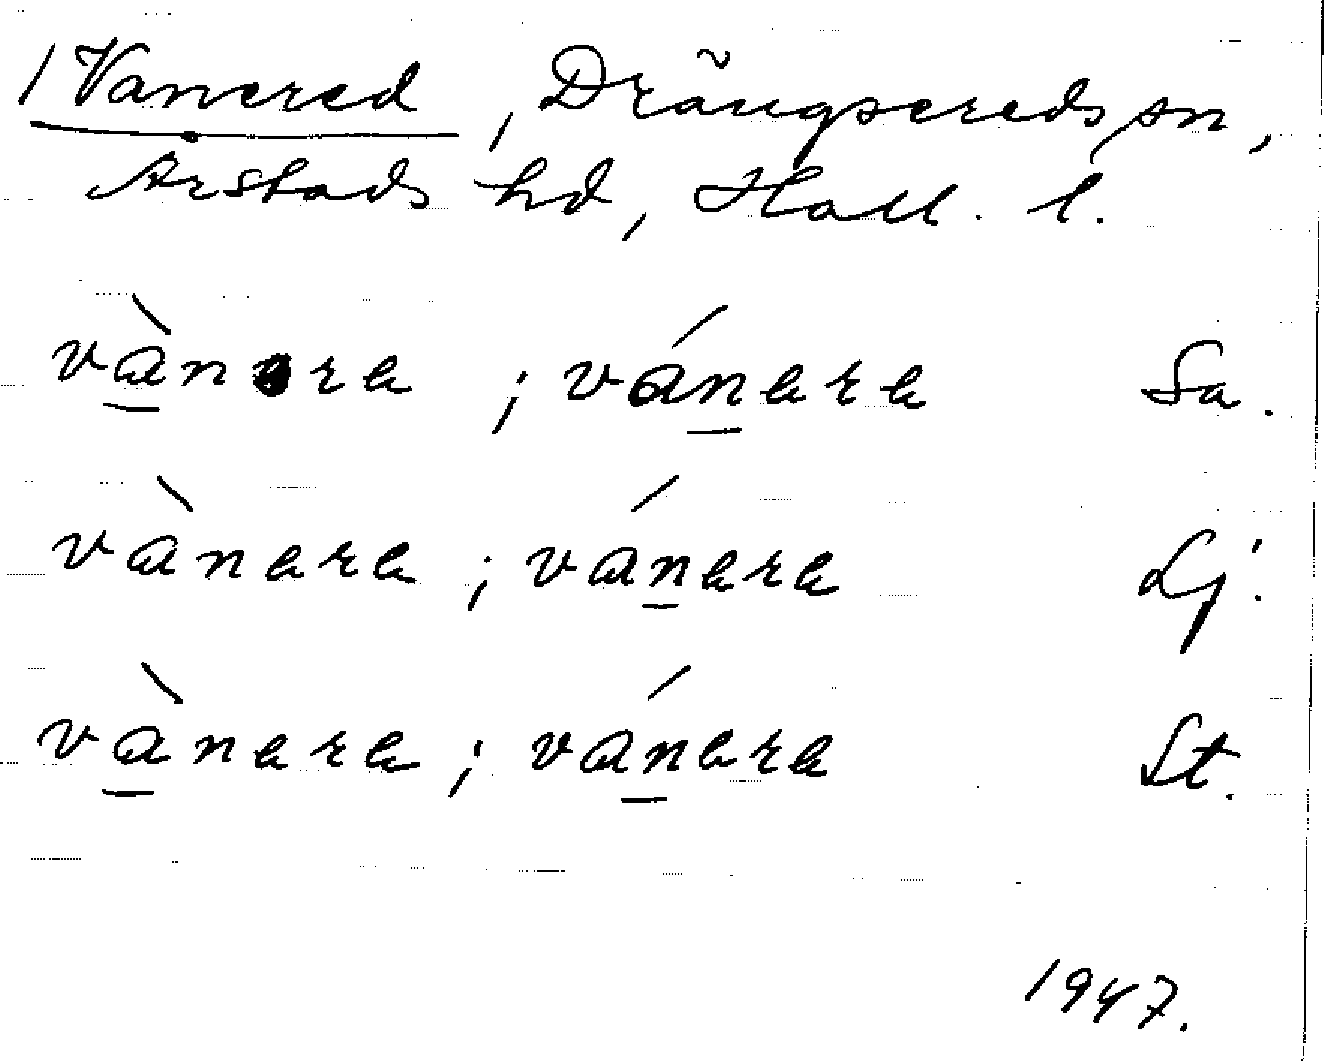 / Vanered, Drängsereds sn,
Årstads hd, Hall. l.
vànere ; vánere Sa.
vànere ; vánere Lj.
vànere ; vánere St.
1947.